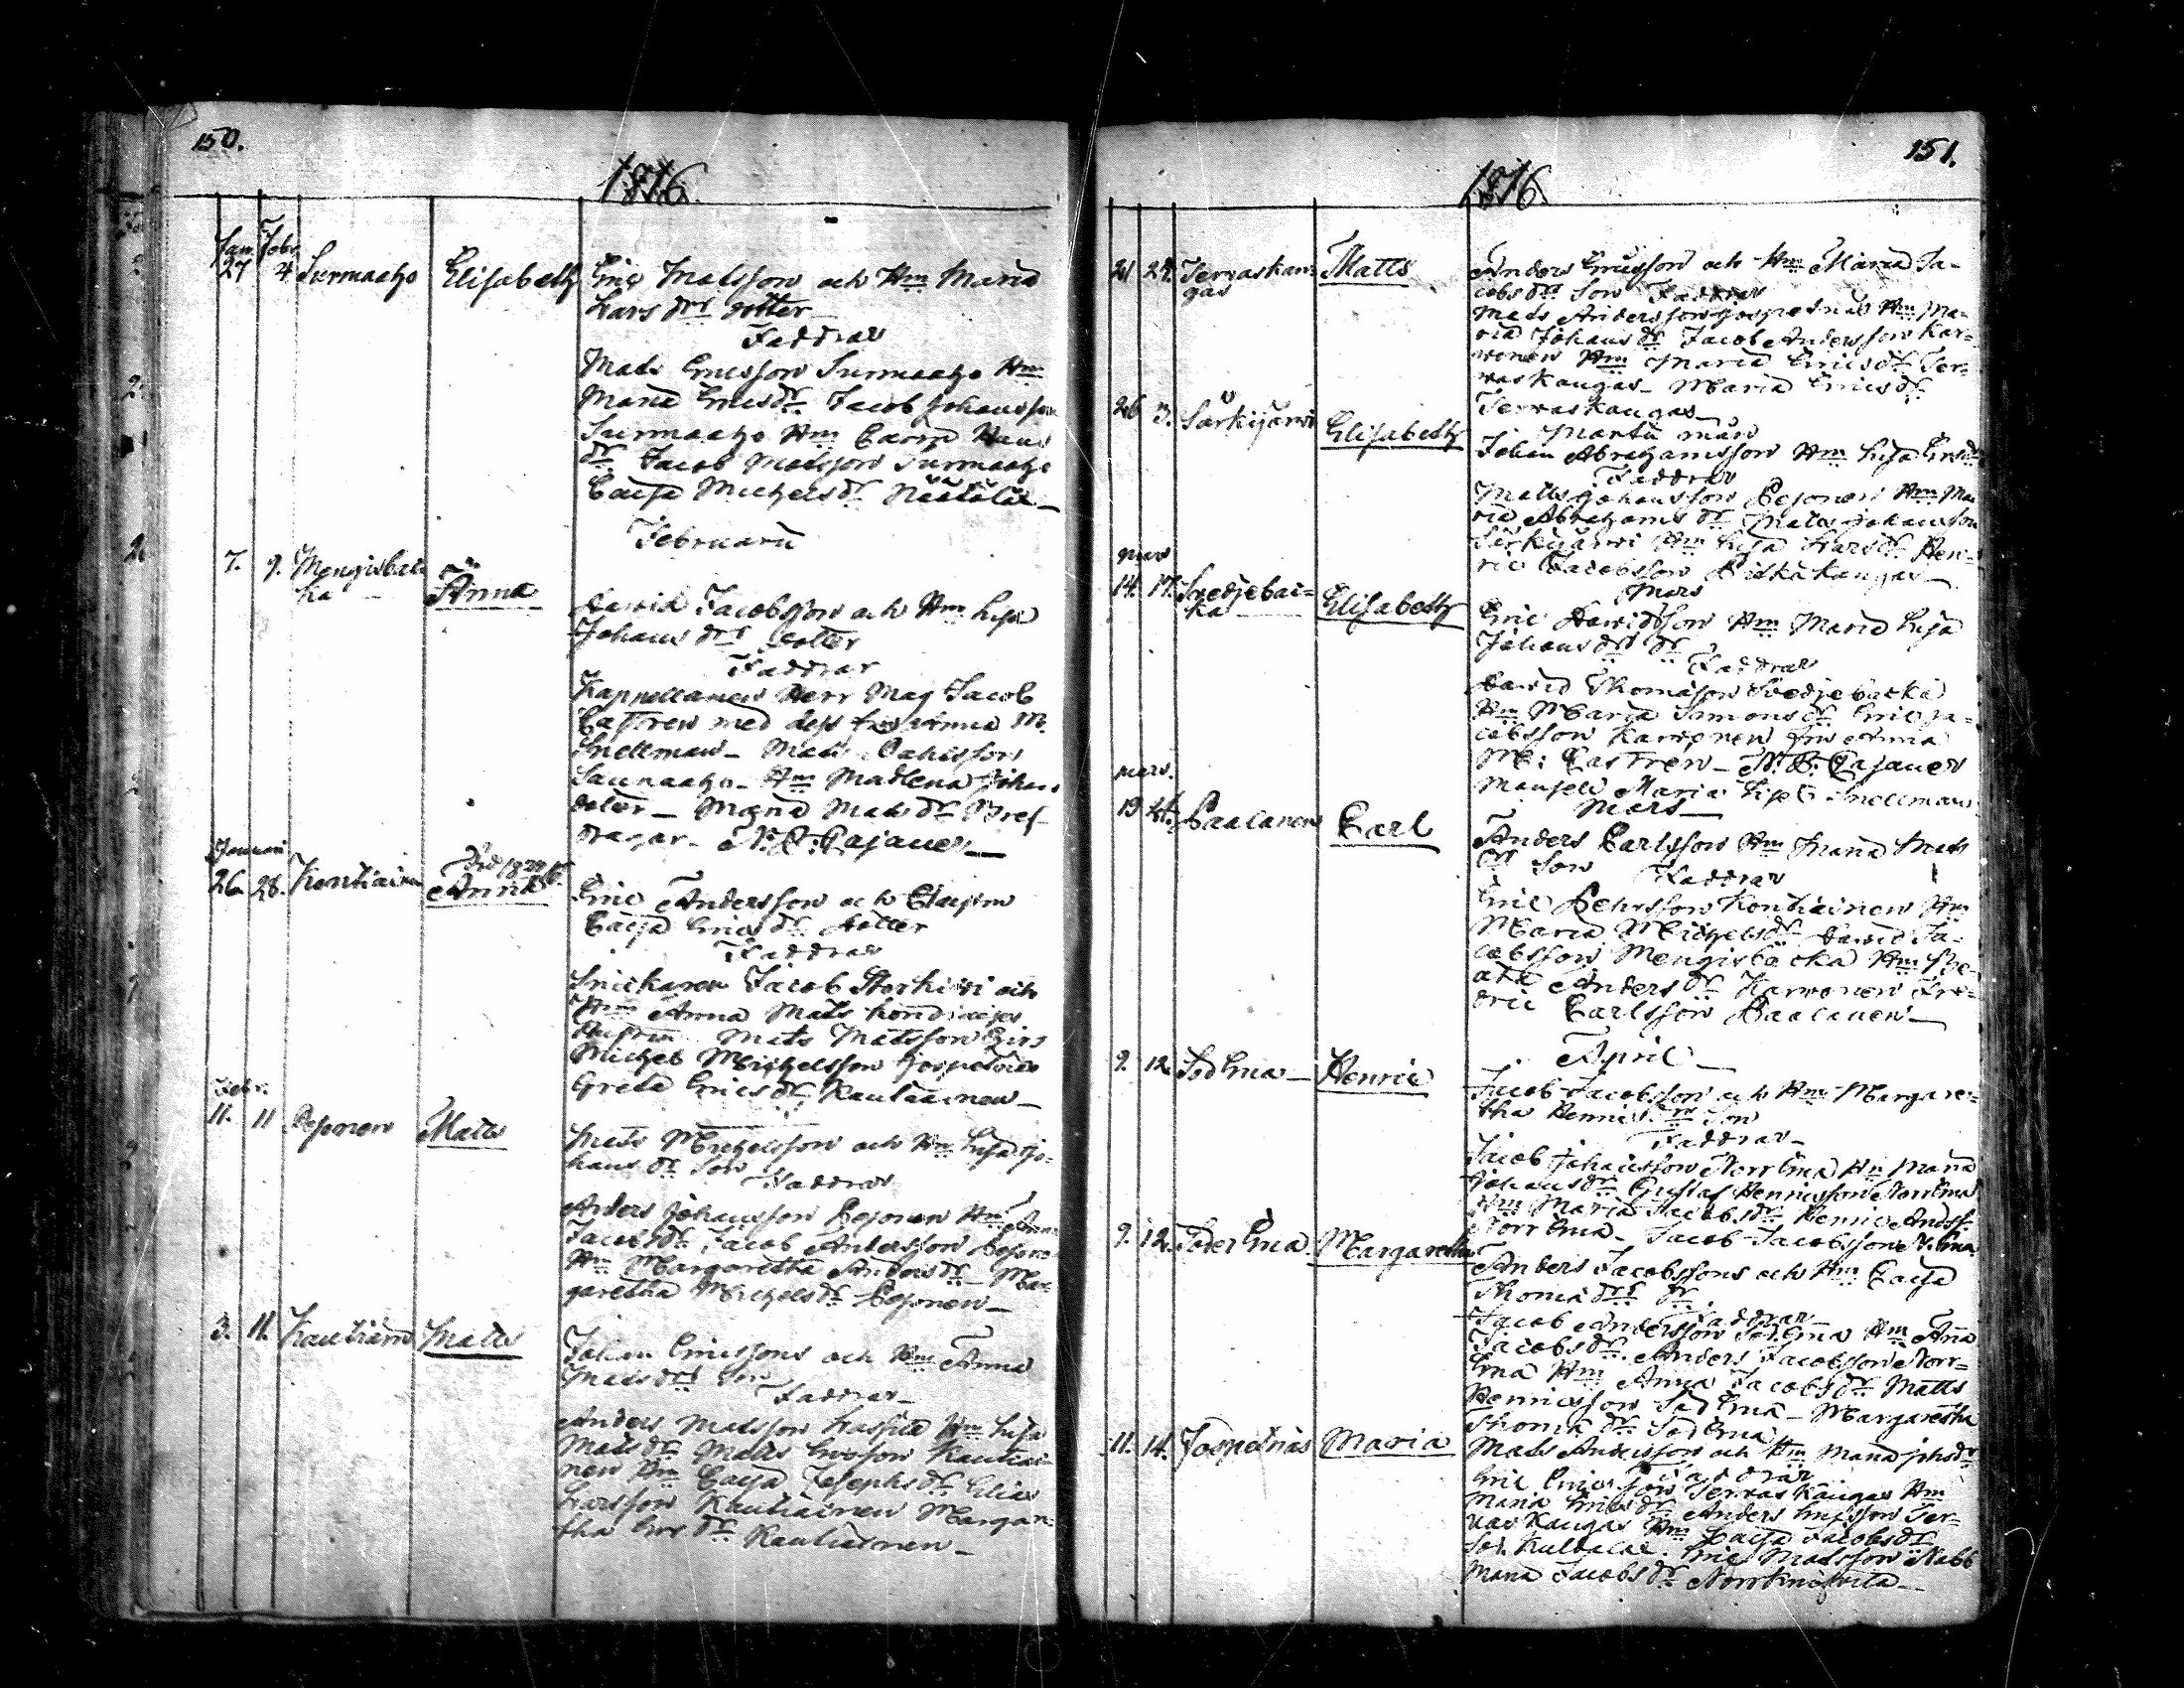 150.
1816.
Jan. Febr.
27 4 Surmaaho Elisabeth Eric Matsson och Hm Maria
Lars dr dotter
Faddrar
Mats Ericsson Surmaaho Hm
Maria Ericsdr Jacob Johansson
Surmaaho Hm Carin Hans
dr Jacob Matsson Surmaaho
Caisa Michelsdr Näätälä
Februarii
7. 9. Mengisbac
ka Anna
David Jacobsson och Hm Lisa
Johans drs dotter
Faddrar
Kappellanen Herr Mag Jacob
Castren med dess fru Anna M.
Snellman Mats
Hm Madlena Johans
dotter Maria Mats dr
N. J. Cajaner
Januarii
26. 28. Kontiainen Anna
Eric Andersson och
Caisa Erics dr dotter
Faddrar
Snickaren Jacob och
Hm Anna Mats
Hustru Mats Matsson
Michel Michelsson Jospetnäs
Greta Ericsdr Kautiainen
Febr.
11. 11 Pesonen Matts
Mats Michelsson och Hm Lisa Jo-
hans dr Son
Faddrar
Anders Johansson Pesonen Hm Anna
Jacobsdr Jacob Andersson Pesonen
Hm Margaretha Andersdr Mar-
garetha Michelsdr Pesonen
3. 11. Kautiainen Matts
Johan Ericssons och Hm Anna
Mats drs Son
Faddrar
Anders Matsson Hm Lisa
Matsdr Matts Ersson Kautiai-
nen Hm Caisa Josephsdr Elias
Larsson Kautiainen Margare-
tha Ers dr Kautiainen
151.
1816.
21 24. Tervaskan-
gas Matts
Anders Ericsson och Hm Maria Ja-
cobs drs Son Faddrar
Mats Andersson Jospetnäs Hm Ma-
ria Johans dr Jacob Andersson Kar-
vonen Hm Maria Ericsdr Ter-
vaskangas Maria Ericsdr
Tervaskangas
26 3. Särkijärvi Elisabeth
Johan Abrahamsson Hm Lisa Ersdr
Faddrar
Matts Johansson Pesonen Hm Ma
ria Abrahams dr Mats Johansson
Särkijärvi Hm Lisa Larsdr Hen-
ric Jacobsson Pitkäkangas
mars
Mars
14. 17. Svedjebac-
ka Elisabeth
Eric Davidsson Hm Maria Lisa
Johans drs dr
Faddrar
David Thomasson Svedjebacka
Hm Maria Simons dr Eric Ja-
cobsson Karvonen Fru Anna
M. Castren N. J. Cajaner
Mamsell Maria Lisa Snellman
mars.
Mars
19 Paalanen Carl
Anders Carlsson Hm Maria Mats
drs Son
Faddrar
Eric Pehrsson Kontiainen Hm
Maria Michelsdr David Ja-
cobsson Mengisbacka Hm Be-
ata Anders dr Karvonen Fre-
dric Carlsson Paalanen
April
9. 12. Söd Emä Henric
Jacob Jacobsson och Hm Margare-
tha Henricsdr Son
Faddrar
Jacob Johansson Norr Emä Hm Maria
Johansdr Gustaf Henricsson Norr Emä
Hm Maria Jacobsdr Henric Anders.
Norr Emä Jacob Jacobsson N. Emä
9. 12. Söder Emä Margaretha
Anders Jacobssons och Hm Caisa
Thomä drs dr
Faddrar
Jacob Andersson Söd Emä Hm Anna
Jacobsdr Anders Jacobsson Norr-
Emä Hm Anna Jacobsdr Matts
Henricsson Söd Emä Margaretha
Thomä dr Söd Emä
11. 14. Jospetnäs Maria
Mats Andersson och Hm Maria Johsdr
Faddrar
Eric Ericsson Tervaskangas Hm
Maria Ericsdr Anders Ericsson Ter-
vaskangas Hm Caisa Jacobsdr
Eric Matsson Nabb
Maria Jacobs dr